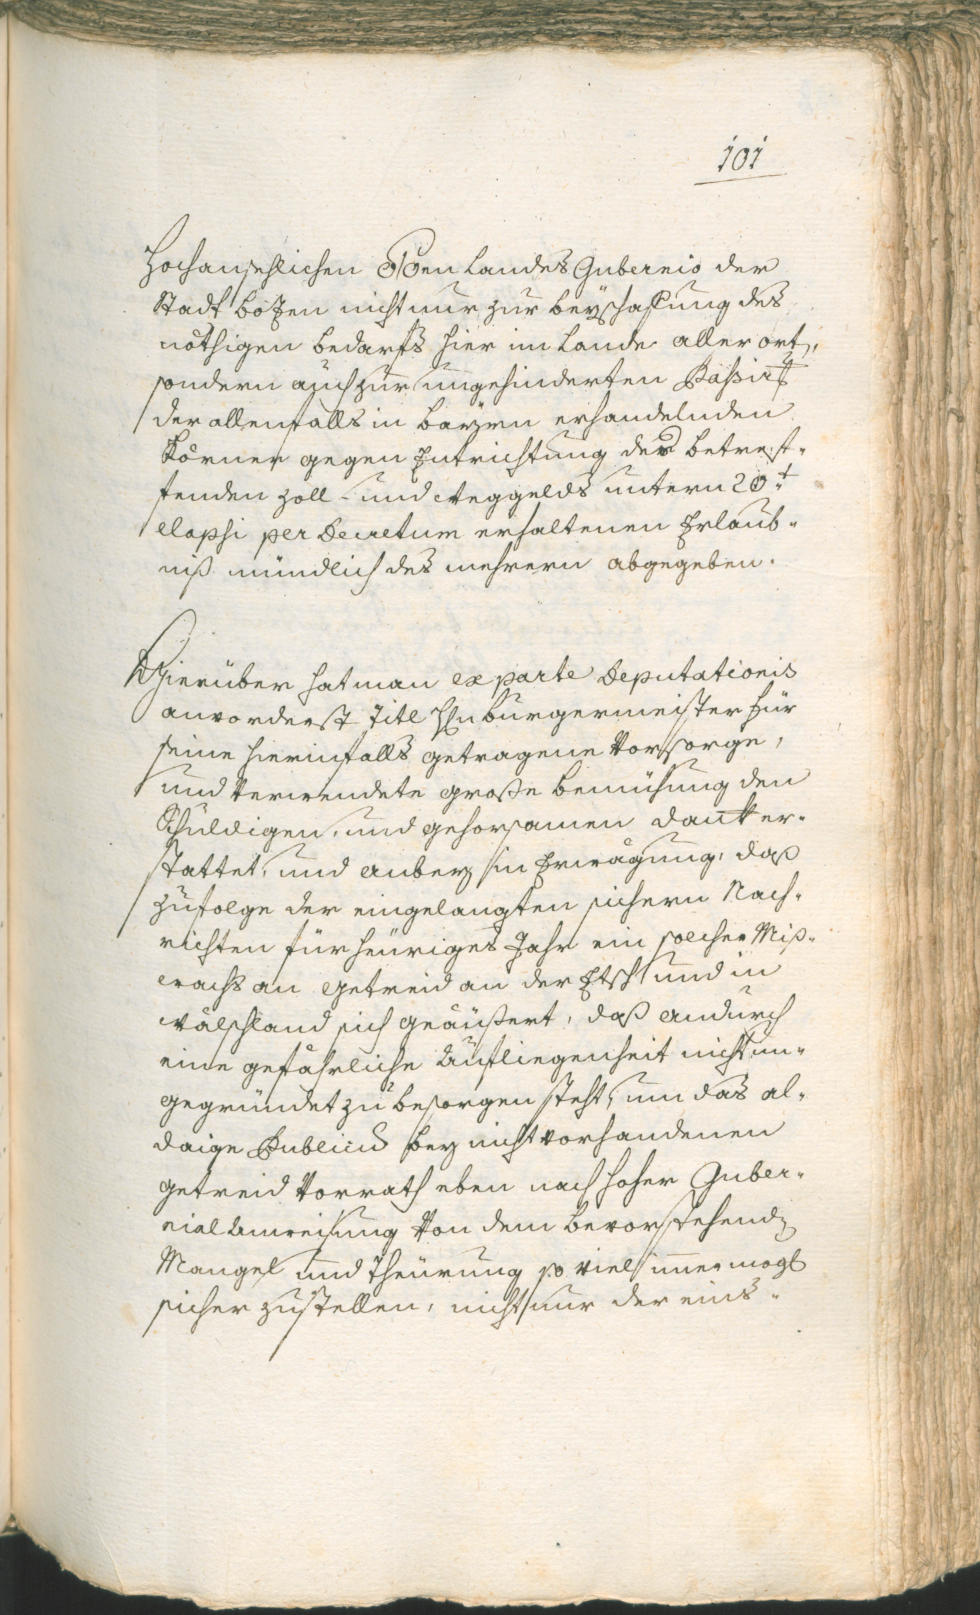 101
Hochansehlichen OÖen Landes Gubernio der
Stadt Bozen nicht nur zur beyschaffung des
nöthigen bedarfs hier im Lande aller ort,
sondern auch zur ungehinderten Passir[un]g
der allenfalls in Bayrn erhandelnden
Körner gegen Entrichtung des betref-
fenden Zoll- und Weggelds untern 20t
elapsi per Decretum erhaltenen Erlaub-
niß mündlich des mehrern abgegeben.
Hierüber hat man ex parte Deputationis
anvorderst Titl Hrn burgermeister für
seine hierinfalls getragene Vorsorge,
und Verwendete große bemühung den
Schuldigen, und gehorsamen dank er-
stattet, und anbey in Erwägung, daß
zufolge der eingelangten sichern Nach-
richten für heuriges Jahr ein solcher Miß-
wachs an Getreid an der Etsch und in
wälschland sich geäußert, daß andurch
eine gefährliche Aufliegenheit nicht un-
gegründet zu besorgen steht, um das al-
daige Publicum bey nicht vorhandenen
getreid Vorrath eben nach hoher Guber-
nial Anweisung Von dem bevorstehend[en]
Mangel und Theürung so viel im̅er mögl
sicher zustellen, nicht nur der eins-